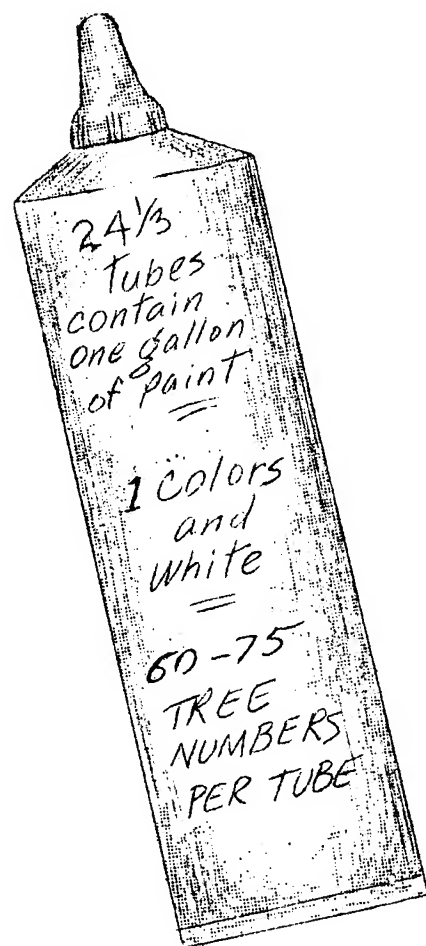 24 1/3
Tubes
contain
One gallon
of Paint
1 Colors
and
White
60-75
TREE
NUMBERS
PER TUBE